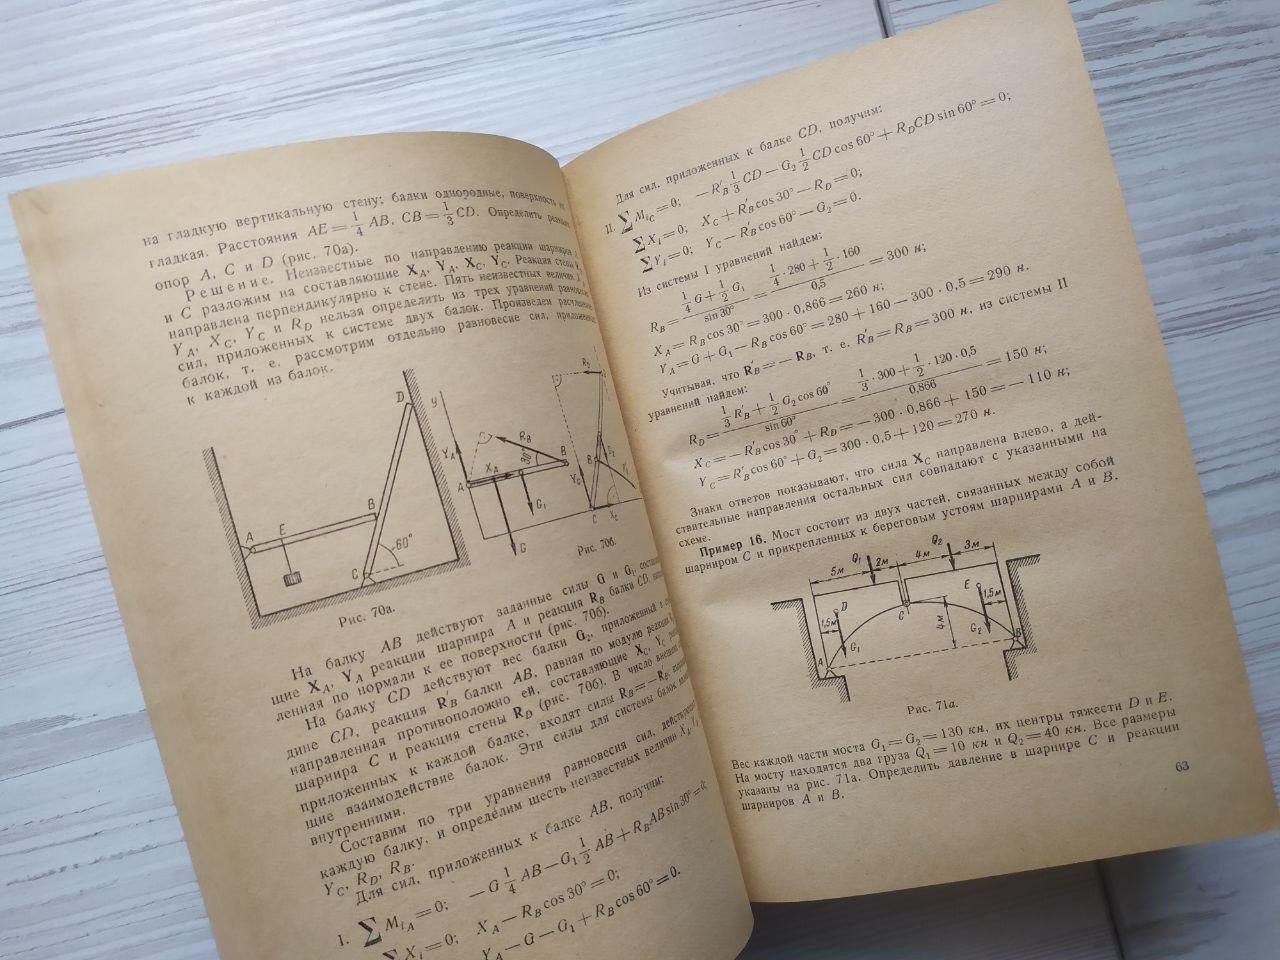 на гладкую вертикальную стену; балки однородные, поверхность их
гладкая. Расстояния AE = 1/4 AB, CB = 1/3 CD. Определить реакции
опор A, C и D (рис. 70а).
Решение. Неизвестные по направлению реакции шарниров A
и C разложим на составляющие X_A, Y_A, X_C, Y_C. Реакция стены
направлена перпендикулярно к стене. Пять неизвестных величин
Y_A, X_C, Y_C и R_D нельзя определить из трех уравнений равновесия
сил, приложенных к системе двух балок. Произведем расчленение
балок, т. е. рассмотрим отдельно равновесие сил, приложенных
к каждой из балок.
D
A
E
B
C
60°
Рис. 70а.
y
Y_A
X_A
A
R_B
30°
B
G_1
G
R_D
B
Y_C
C
X_C
Рис. 70б.
На балку AB действуют заданные силы G и G_1,
щие X_A, Y_A реакции шарнира A и реакция R_B балки CD,
ленная по нормали к ее поверхности (рис. 70б).
На балку CD действуют вес балки G_2, приложенный в
дине CD, реакция R'_B балки AB, равная по модулю реакции
направленная противоположно ей, составляющие X_C, Y_C
шарнира C и реакция стены R_D (рис. 70б). В число внешних
приложенных к каждой балке, входят силы R_B = — R'_B,
щие взаимодействие балок. Эти силы для системы балок
внутренними.
Составим по три уравнения равновесия сил, действующих
каждую балку, и определим шесть неизвестных величин X_A, Y_A,
Y_C, R_D, R_B.
Для сил, приложенных к балке AB, получим:
I. ∑M_iA = 0; — G 1/4 AB — G_1 1/2 AB + R_B AB sin 30° = 0;
∑X_i = 0; X_A — R_B cos 30° = 0;
Y_A — G — G_1 + R_B cos 60° = 0.
Для сил, приложенных к балке CD, получим:
II. ∑M_iC = 0; — R'_B 1/3 CD — G_2 1/2 CD cos 60° + R_D CD sin 60° = 0;
∑X_i = 0; X_C + R'_B cos 30° — R_D = 0;
∑Y_i = 0; Y_C — R'_B cos 60° — G_2 = 0.
Из системы I уравнений найдем:
R_B = (1/4 G + 1/2 G_1) / sin 30° = (1/4 · 280 + 1/2 · 160) / 0,5 = 300 н;
X_A = R_B cos 30° = 300 · 0,866 = 260 н;
Y_A = G + G_1 — R_B cos 60° = 280 + 160 — 300 · 0,5 = 290 н.
Учитывая, что R'_B = — R_B, т. е. R'_B = R_B = 300 н, из системы II
уравнений найдем:
R_D = (1/3 R'_B + 1/2 G_2 cos 60°) / sin 60° = (1/3 · 300 + 1/2 · 120 · 0,5) / 0,866 = 150 н;
X_C = — R'_B cos 30° + R_D = — 300 · 0,866 + 150 = — 110 н;
Y_C = R'_B cos 60° + G_2 = 300 · 0,5 + 120 = 270 н.
Знаки ответов показывают, что сила X_C направлена влево, а дей-
ствительные направления остальных сил совпадают с указанными на
схеме.
Пример 16. Мост состоит из двух частей, связанных между собой
шарниром C и прикрепленных к береговым устоям шарнирами A и B.
5м
Q_1
2м
Q_2
4м
3м
D
1,5м
G_1
A
C
4м
E
1,5м
G_2
B
Рис. 71а.
Вес каждой части моста G_1 = G_2 = 130 кн, их центры тяжести D и E.
На мосту находятся два груза Q_1 = 10 кн и Q_2 = 40 кн. Все размеры
указаны на рис. 71а. Определить давление в шарнире C и реакции
шарниров A и B.
63